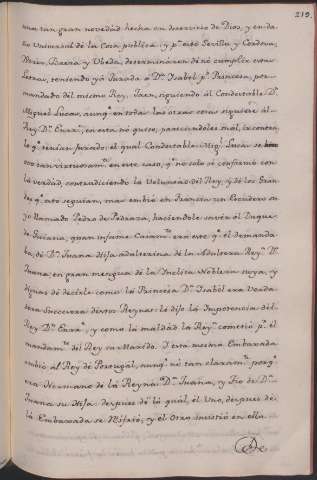 219.
una tan gran novedad hecha en deservicio de Dios, y en da-
ño Universal de la Cosa publica: y p.r esto Sevilla y Cordova,
Xerez, Baeza y Ubeda, determinaron de no cumplir estas
Letras, teniendo ya Jurada a D.ª Isabel p.r Princesa, por
mandado del mismo Rey. Jaen, siguiendo al Condestable D.n
Miguel Lucas, aunq.e en todas las otras cosas siguiese al
Rey D.n Enrr.e, en esta no quiso, pareciendoles mal, ir contra
lo q.e tenian jurado: el qual Condestable Mig.l Lucas se
ovo tan virtuosam.te en este caso, q.e no solo se conformó con
la verdad, contradiciendo la Voluntad del Rey, y de los Gran-
des q.e lo seguian, mas embió en Francia un Escudero su-
yo llamado Pedro de Pedraza, haciendole saver al Duque
de Guiana, quan infame Casam.to era este q.e el demanda-
ba, de D.ª Juana Hija adulterina de la Adultera Rey.na D.ª
Juana en gran mengua de la Inclita Nobleza suya, y
dignas de decirle como la Princesa D.ª Isabel era Verda-
dera Succesora destos Reynos: le dijo la Impotencia del
Rey D.n Enrr.e, y como la maldad la Rey.na cometió p.r el
mandam.to del Rey su Marido. I esta mesma Embaxada
embió al Rey de Portugal, aunq.e no tan claram.te porq.e
era Hermano de la Reyna D.ª Juana, y Tio de D.ª
Juana su Hija. despues de la qual, el Uno, despues de
la Embaxada se desistió, y el Otro insistió en ella.
De